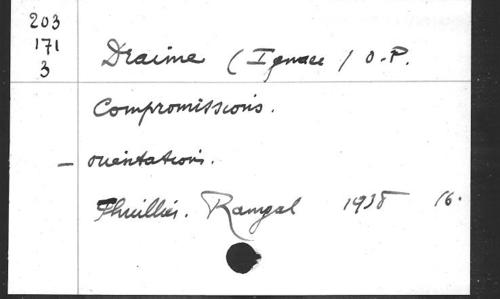 203
171
3
Draime (Ignace) O.P.
Compromissions.
— orientations.
Thuillies. Ramgal 1938 16.